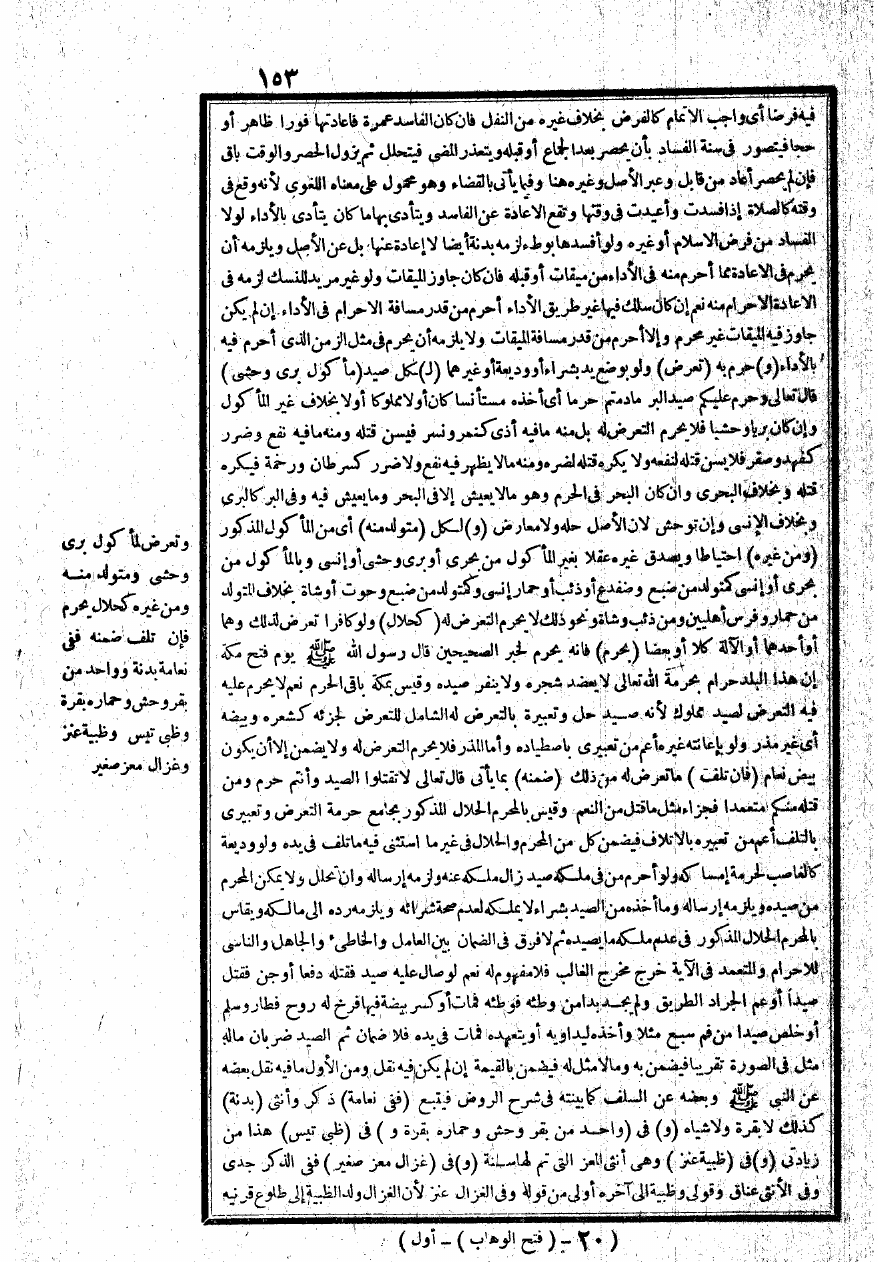 ١٥٣
فيه فرضا أى واجب الاتمام كالفرض بخلاف غيره من النفل فان كان الفاسد عمرة فاعادتها فورا ظاهر أو
حجا فيتصور فى سنة الفساد بأن يحصر بعد الجماع أو قبله ويتعذر المضى فيتحلل ثم يزول الحصر والوقت باق
فان لم يحصر أعاد من قابل وعبر الأصل وغيره هنا وفيما يأتى بالقضاء وهو محمول على معناه اللغوى لأنه وقع فى
وقته كالصلاة إذا فسدت وأعيدت فى وقتها وتقع الاعادة عن الفاسد ويتأدى بها ما كان يتأدى بالأداء لولا
الفساد من فرض الاسلام أو غيره ولو أفسدها بوطء لزمه بدنة أيضا لا إعادة عنها بل عن الأصل ويلزمه أن
يحرم فى الاعادة مما أحرم منه فى الأداء من ميقات أو قبله فان كان جاوز الميقات ولو غير مريد للنسك لزمه فى
الاعادة الاحرام منه نعم إن كان سلك فيها غير طريق الأداء أحرم من قدر مسافة الاحرام فى الأداء إن لم يكن
جاوز فيه الميقات غير محرم وإلا أحرم من قدر مسافة الميقات ولا يلزمه أن يحرم فى مثل الزمن الذى أحرم فيه
بالأداء (و) حرم به (تعرض) ولو بوضع يد بشراء أو وديعة أو غيرهما (ل) كل صيد (مأكول برى وحشى)
قال تعالى وحرم عليكم صيد البر مادمتم حرما أى أخذه مستأنسا كان أولا مملوكا أولا بخلاف غير المأكول
وإن كان بريا وحشيا فلا يحرم التعرض له بل منه مافيه أذى كنمر ونسر فيسن قتله ومنه مافيه نفع وضرر
كفهد وصقر فلا يسن قتله لنفعه ولا يكره قتله لضره ومنه مالا يظهر فيه نفع ولا ضرر كسرطان ورخمة فيكره
قتله وبخلاف البحرى وان كان البحر فى الحرم وهو مالا يعيش إلا فى البحر وما يعيش فيه وفى البر كالبرى
وبخلاف الإنسى وإن توحش لان الأصل حله ولا معارض (و) لكل (متولد منه) أى من المأكول المذكور
(ومن غيره) احتياطا ويصدق غيره عقلا بغير المأكول من بحرى أو برى وحشى أو إنسى وبالمأكول من
بحرى أو إنسى كمتولد من ضبع وضفدع أو ذئب أو حمار إنسى وكمتولد من ضبع وحوت أو شاة بخلاف المتولد
من حمار وفرس أهليين ومن ذئب وشاة ونحو ذلك لا يحرم التعرض له (كحلال) ولو كافرا تعرض لذلك وهما
أو أحدهما أو الآلة كلا أو بعضا (بحرم) فانه يحرم لخبر الصحيحين قال رسول الله ﷺ يوم فتح مكة
إن هذا البلد حرام بحرمة الله تعالى لا يعضد شجره ولا ينفر صيده وقيس بمكة باقى الحرم نعم لا يحرم عليه
فيه التعرض لصيد مملوك لأنه صيد حل وتعبيره بالتعرض له الشامل للتعرض لجزئه كشعره وبيضه
أى غير مذر ولو باعانته غيره أعم من تعبيرى باصطياده وأما المذر فلا يحرم التعرض له ولا يضمن إلا أن يكون
بيض نعام (فان تلف) ماتعرض له من ذلك (ضمنه) بما يأتى قال تعالى لا تقتلوا الصيد وأنتم حرم ومن
قتله منكم متعمدا فجزاء مثل ماقتل من النعم وقيس بالمحرم الحلال المذكور بجامع حرمة التعرض وتعبيرى
بالتلف أعم من تعبيره بالاتلاف فيضمن كل من المحرم والحلال فى غير ما استثنى فيه ماتلف فى يده ولو وديعة
كالغاصب لحرمة إمساكه ولو أحرم من فى ملكه صيد زال ملكه عنه ولزمه إرساله وان تحلل ولا يملك المحرم
من صيده ويلزمه إرساله وما أخذه من الصيد بشراء لا يملكه لعدم صحة شرائه ويلزمه رده الى مالكه ويقاس
بالمحرم الحلال المذكور فى عدم ملكه ما يصيده ثم لا فرق فى الضمان بين العامل والخاطىء والجاهل والناسى
للاحرام والمتعمد فى الآية خرج مخرج الغالب فلا مفهوم له نعم لو صال عليه صيد فقتله دفعا أو جن فقتل
صيدا أو عم الجراد الطريق ولم يجد بدا من وطئه فوطئه فمات أو كسر بيضة فيها فرخ له روح فطار وسلم
أو خلص صيدا من فم سبع مثلا وأخذه ليداويه أو يتعهده فمات فى يده فلا ضمان ثم الصيد ضربان ماله
مثل فى الصورة تقريبا فيضمن به ومالا مثل له فيضمن بالقيمة إن لم يكن فيه نقل ومن الأول مافيه نقل بعضه
عن النبى ﷺ وبعضه عن السلف كما بينته فى شرح الروض فيتبع (ففى نعامة) ذكر وأنثى (بدنة)
كذلك لا بقرة ولا شياه (و) فى (واحد من بقر وحش وحماره بقرة و) فى (ظبى تيس) هذا من
زيادتى (و) فى (ظبية عنز) وهى أنثى المعز التى تم لها سنة (و) فى (غزال معز صغير) ففى الذكر جدى
وفى الأنثى عناق وقولى وظبية الى آخره أولى من قوله وفى الغزال عنز لأن الغزال ولد الظبية إلى طلوع قرنيه
وتعرض لمأكول برى
وحشى ومتولد منه
ومن غيره كحلال بحرم
فإن تلف ضمنه ففى
نعامة بدنة وواحد من
بقر وحش وحماره بقرة
وظبى تيس وظبية عنز
وغزال معز صغير
(٢٠ - (فتح الوهاب) - أول)